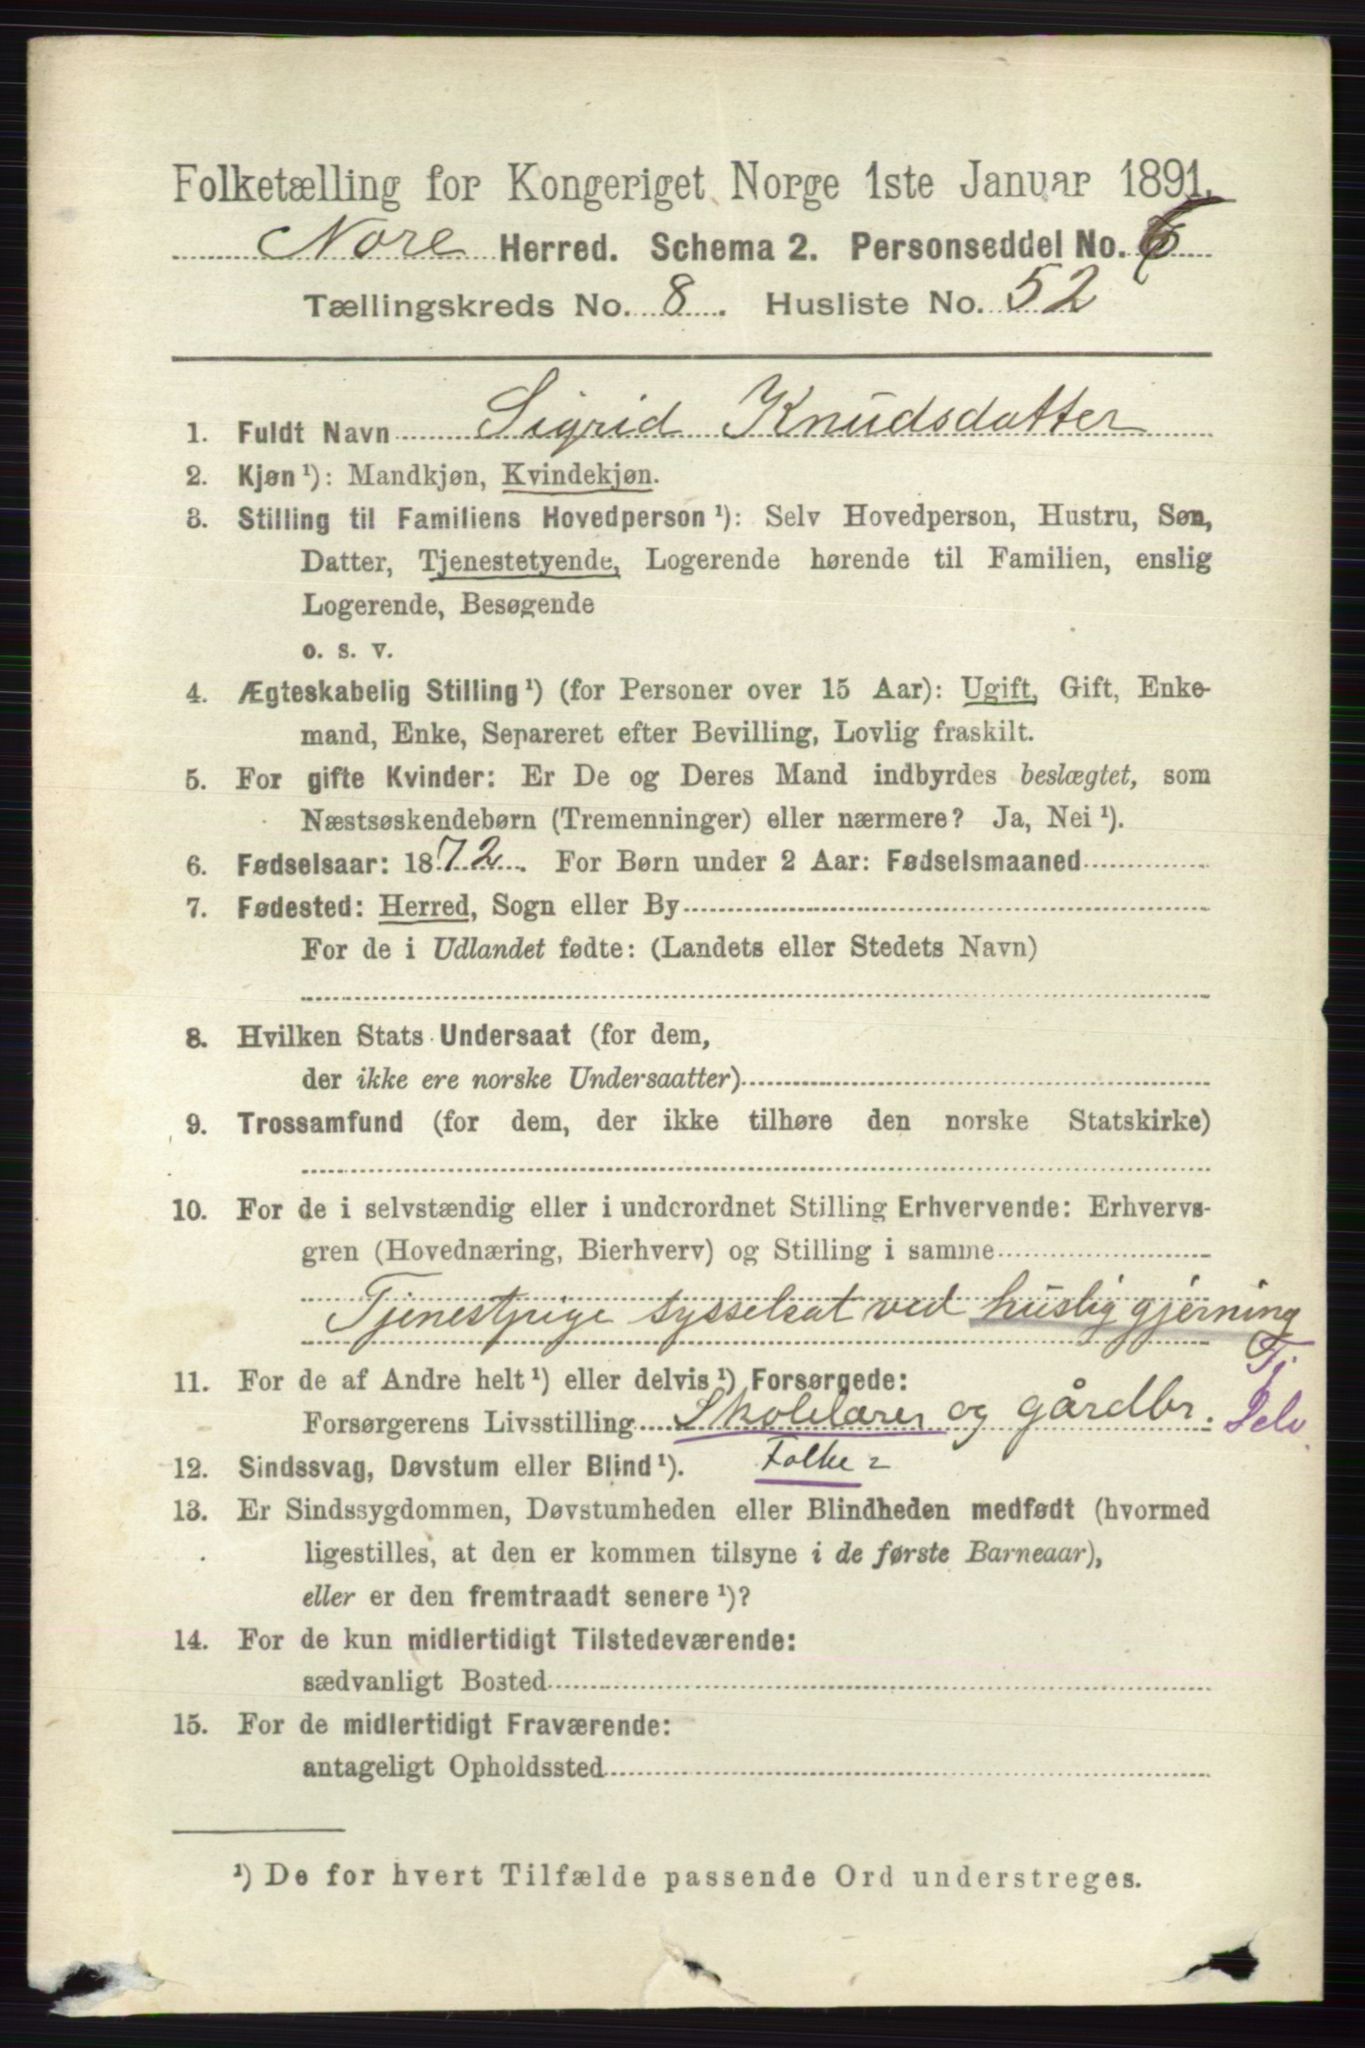 Folketælling for Kongeriget Norge 1ste Januar 1891.
Nore Herred. Schema 2. Personseddel No. 6
Tællingskreds No. 8. Husliste No. 52
1. Fuldt Navn Sigrid Knudsdatter
2. Kjøn ¹): Mandkjøn, Kvindekjøn.
3. Stilling til Familiens Hovedperson ¹): Selv Hovedperson, Hustru, Søn,
Datter, Tjenestetyende, Logerende hørende til Familien, enslig
Logerende, Besøgende
o. s. v.
4. Ægteskabelig Stilling ¹) (for Personer over 15 Aar): Ugift, Gift, Enke-
mand, Enke, Separeret efter Bevilling, Lovlig fraskilt.
5. For gifte Kvinder: Er De og Deres Mand indbyrdes beslægtet, som
Næstsøskendebørn (Tremenninger) eller nærmere? Ja, Nei ¹).
6. Fødselsaar: 1872. For Børn under 2 Aar: Fødselsmaaned
7. Fødested: Herred, Sogn eller By
For de i Udlandet fødte: (Landets eller Stedets Navn)
8. Hvilken Stats Undersaat (for dem,
der ikke ere norske Undersaatter)
9. Trossamfund (for dem, der ikke tilhøre den norske Statskirke)
10. For de i selvstændig eller i underordnet Stilling Erhvervende: Erhvervs-
gren (Hovednæring, Bierhverv) og Stilling i samme
Tjenestpige sysselsat ved huslig gjerning
Tj
11. For de af Andre helt ¹) eller delvis ¹) Forsørgede:
Forsørgerens Livsstilling Skolelærer og gårdbr. Selv.
12. Sindssvag, Døvstum eller Blind ¹). Folke=
13. Er Sindssygdommen, Døvstumheden eller Blindheden medfødt (hvormed
ligestilles, at den er kommen tilsyne i de første Barneaar),
eller er den fremtraadt senere ¹)?
14. For de kun midlertidigt Tilstedeværende:
sædvanligt Bosted
15. For de midlertidigt Fraværende:
antageligt Opholdssted
¹) De for hvert Tilfælde passende Ord understreges.